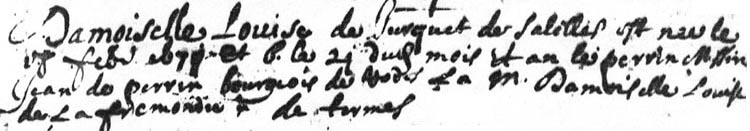 Damoiselle Louise de Turquet de Salelles est nee le
feb. et b. le 21 dud. mois et an le perrin Messire
Jean de perrin bourgeois de Rodes La M. Damoiselle Louise
de La fremondie de termes